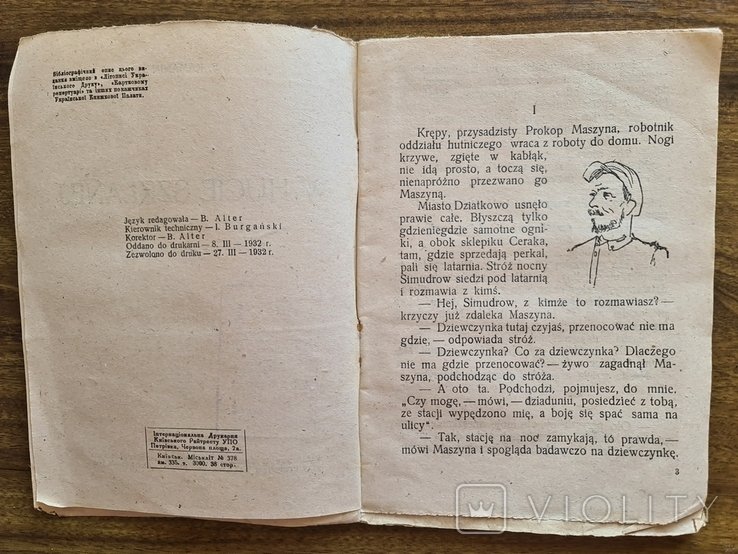 Бібліографічний опис цього ви-
дання вміщено в «Літопису Укра-
їнського Друку», «Картковому
репертуарі» та інших покажчиках
Української Книжкової Палати.
Język redagowała — B. Alter
Kierownik techniczny — I. Burgański
Korektor — B. Alter
Oddano do drukarni — 8. III — 1932 r.
Zezwolono do druku — 27. III — 1932 r.
Інтернаціональна Друкарня
Київського Райтресту УПО
Петрівка, Червона площа, 2а.
Київськ. Міськліт № 378
зм. 335. т. 3000. 38 стор.
I
Krępy, przysadzisty Prokop Maszyna, robotnik
oddziału hutniczego wraca z roboty do domu. Nogi
krzywe, zgięte w kabłąk,
nie idą prosto, a toczą się,
nienapróżno przezwano go
Maszyną.
Miasto Dziatkowo usnęło
prawie całe. Błyszczą tylko
gdzieniegdzie samotne ogni-
ki, a obok sklepiku Ceraka,
tam, gdzie sprzedają perkal,
pali się latarnia. Stróż nocny
Simudrow siedzi pod latarnią
i rozmawia z kimś.
— Hej, Simudrow, z kimże to rozmawiasz? —
krzyczy już zdaleka Maszyna.
— Dziewczynka tutaj czyjaś, przenocować nie ma
gdzie, — odpowiada stróż.
— Dziewczynka? Co za dziewczynka? Dlaczego
nie ma gdzie przenocować? — żywo zagadnął Ma-
szyna, podchodząc do stróża.
— A oto ta. Podchodzi, pojmujesz, do mnie.
„Czy mogę, — mówi, — dziaduniu, posiedzieć z tobą,
ze stacji wypędzono mię, a boję się spać sama na
ulicy".
— Tak, stację na noc zamykają, tó prawda, —
mówi Maszyna i spogląda badawczo na dziewczynkę.
3
VIOLITY